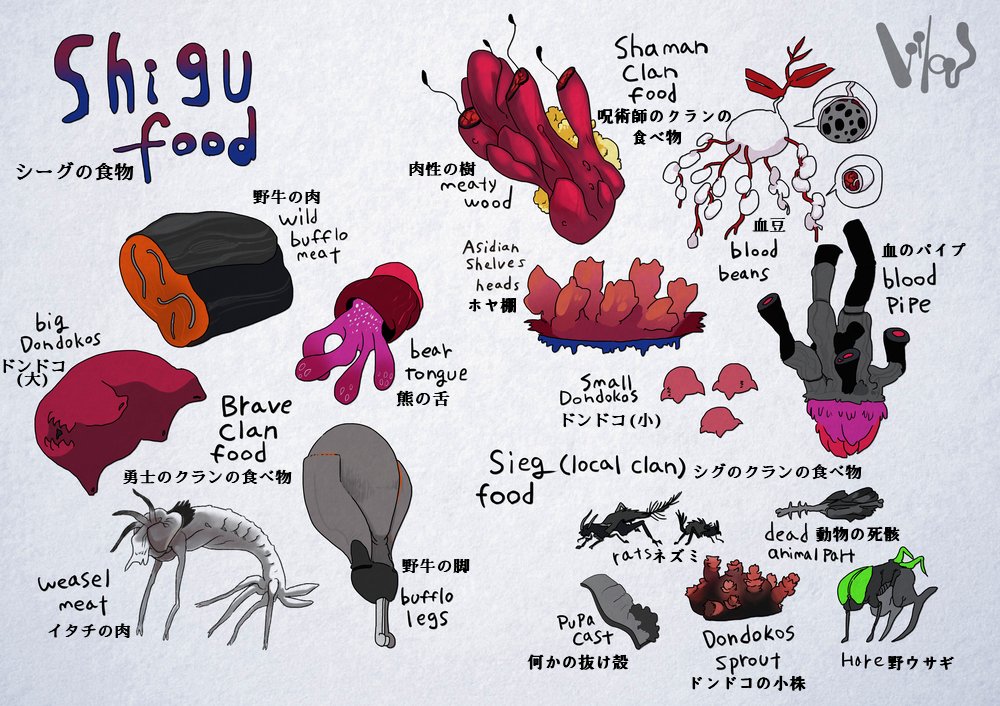 Shigu
food
シーグの食物
野牛の肉
wild
bufflo
meat
big
Dondokos
ドンドコ
(大)
bear
tongue
熊の舌
Brave
Clan
food
勇士のクランの食べ物
weasel
meat
イタチの肉
野牛の脚
bufflo
legs
Shaman
Clan
food
呪術師のクランの
食べ物
肉性の樹
meaty
wood
血豆
blood
beans
Asidian
Shelves
heads
ホヤ棚
血のパイプ
blood
PiPe
Small
Dondokos
ドンドコ(小)
Sieg (local clan)
food
シグのクランの食べ物
rats ネズミ
dead 動物の死骸
animal Part
PuPa
Cast
何かの抜け殻
Dondokos
Sprout
ドンドコの小株
Hare 野ウサギ